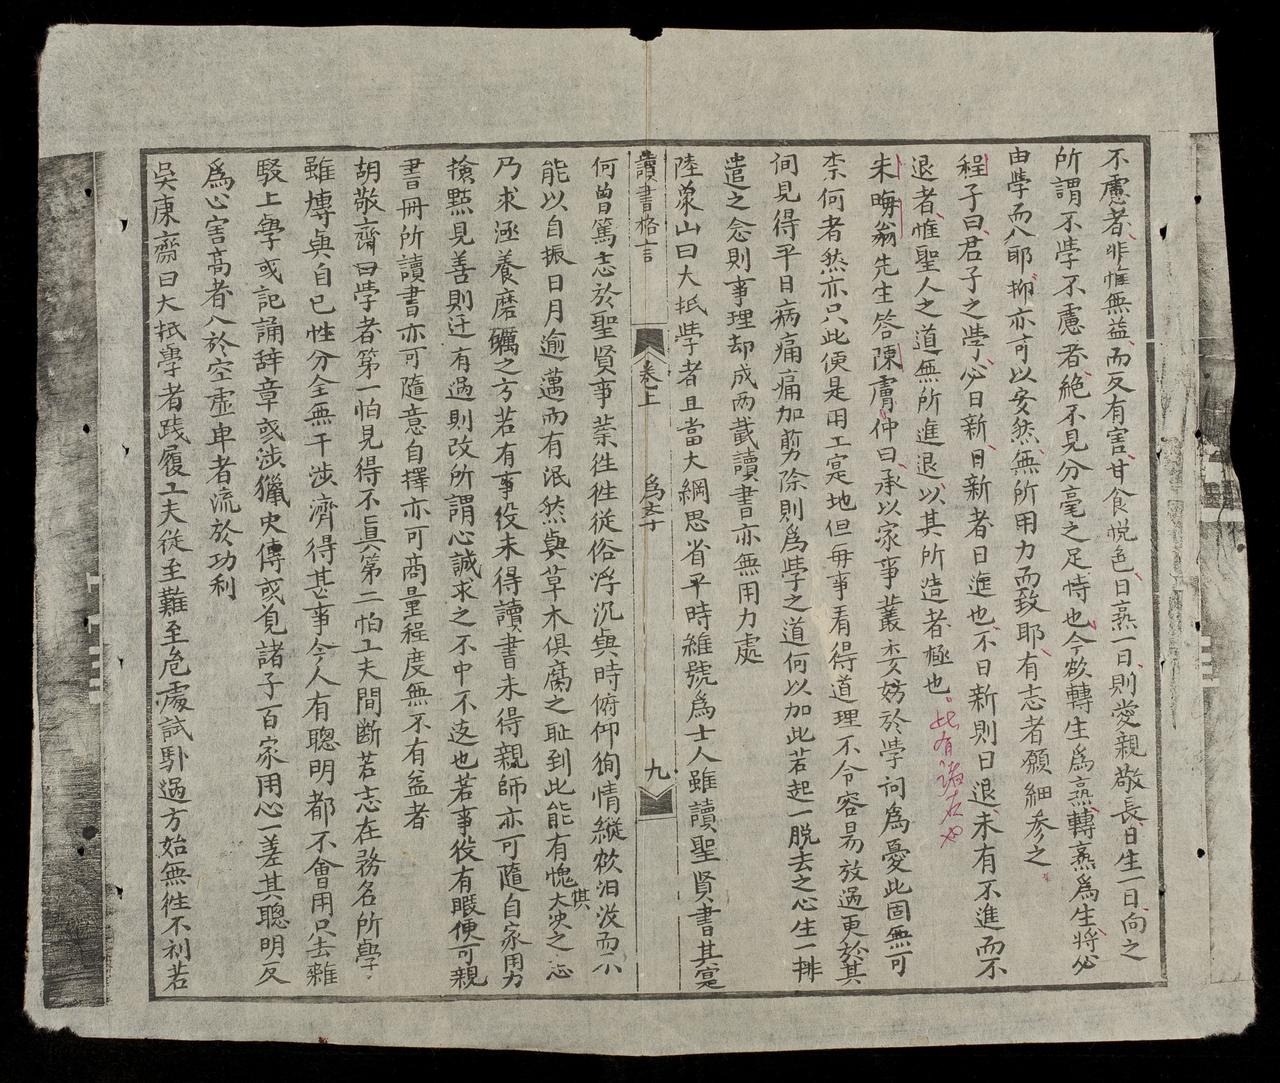 不慮者非惟無益而反有害甘食悅色日熹一日則愛親敬長日生一日向之
所謂不學不慮者絶不見分毫之足恃也今欲轉生爲熹轉熹爲生將必
由學而入耶抑亦可以安然無所用力而致耶有志者願細參之
程子曰君子之學必日新日新者日進也不日新則日退未有不進而不
退者惟聖人之道無所進退以其所造者極也此有諸右
朱晦翁先生答陳膚仲曰承以家事叢委妨於学詞爲憂此固無可
柰何者然亦只此便是用工寔地但每事看得道理不令容易放過更於其
间見得平日病痛痛加剪除則爲學之道何以加此若起一脱去之心生一排
遣之念則事理却成兩截讀書亦無用力處
陸象山曰大抵学者且當大綱思省平時雖號爲士人雖讀聖賢書其寔
讀書格言 卷上 爲学 九
何曾篤志於聖賢事業徃徃從俗浮沉與時俯仰徇情縱欲汨没而不
能以自振日月逾邁而有泯然與草木俱腐之耻到此能有愧惧大决之志
乃求涵養磨礪之方若有事役未得讀書未得親師亦可隨自家用力
撿㸃見善則迁有過則改所謂心誠求之不中不遠也若事役有暇便可親
書冊所讀書亦可隨意自擇亦可商量程度無不有益者
胡敬齋曰学者第一怕見得不真第二怕工夫間断若志在務名所學
雖博與自己性分全無干涉濟得甚事今人有聰明都不會用只去雜
駁上學或記誦辞章或涉獵史傳或覓諸子百家用心一差其聰明反
爲心害高者入於空虛卑者流於功利
吳康齋曰大抵學者践履工夫從至難至危處試馿過方始無徃不利若